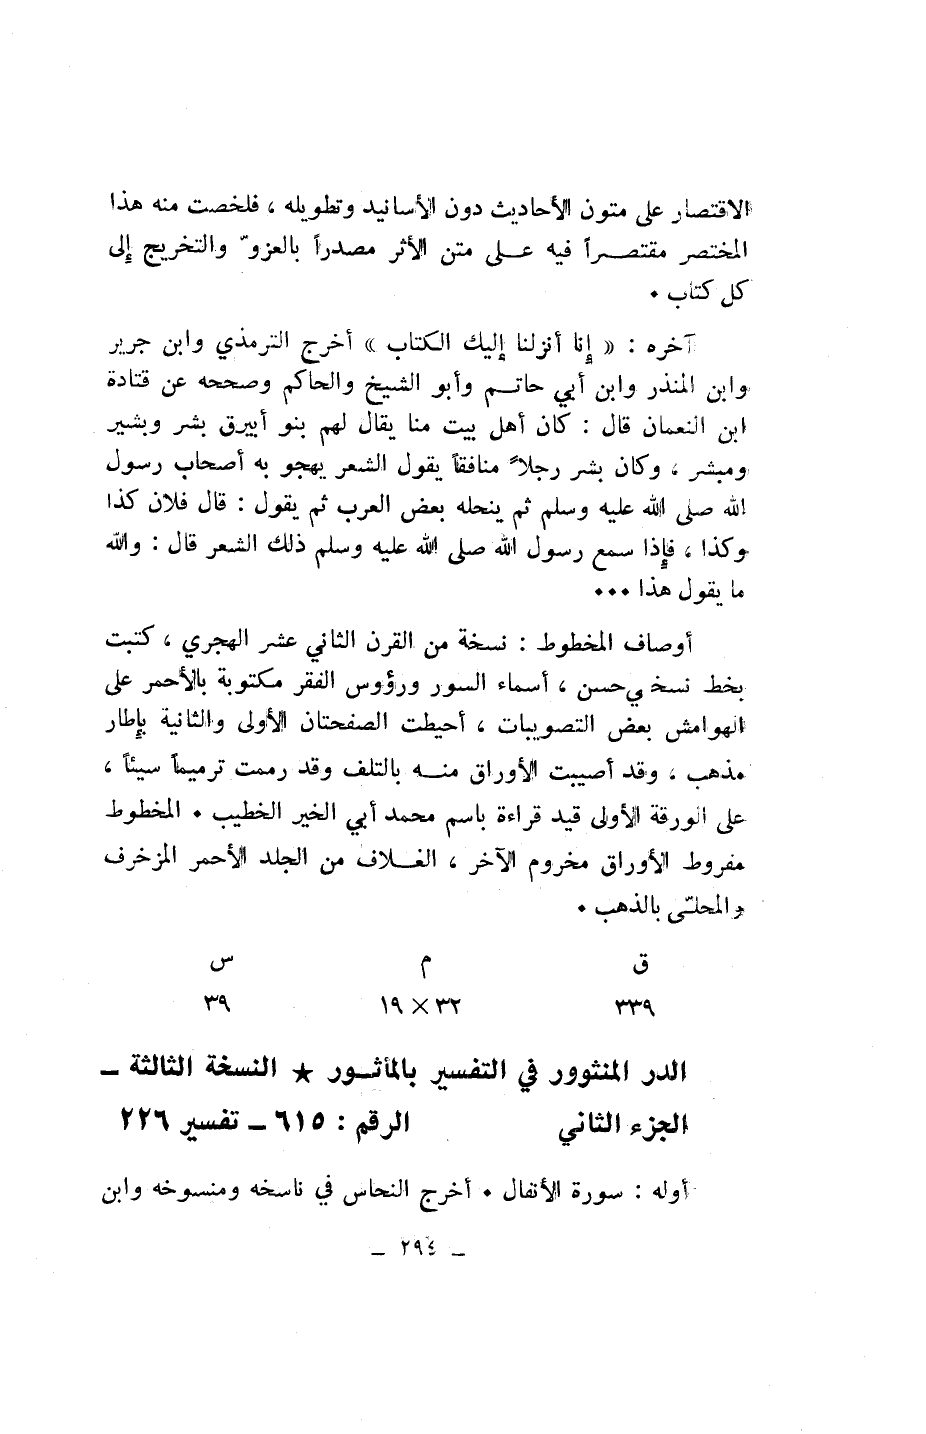 الاقتصار على متون الأحاديث دون الأسانيد وتطويله ، فلخصت منه هذا
المختصر مقتصراً فيه على متن الأثر مصدراً بالعزوّ والتخريج إلى
كل كتاب .
آخره : « إنا أنزلنا إليك الكتاب » أخرج الترمذي وابن جرير
وابن المنذر وابن أبي حاتم وأبو الشيخ والحاكم وصححه عن قتادة
ابن النعمان قال : كان أهل بيت منا يقال لهم بنو أبيرق بشر وبشير
ومبشر ، وكان بشر رجلاً منافقاً يقول الشعر يهجو به أصحاب رسول
الله صلى الله عليه وسلم ثم ينحله بعض العرب ثم يقول : قال فلان كذا
وكذا ، فإذا سمع رسول الله صلى الله عليه وسلم ذلك الشعر قال : والله
ما يقول هذا ...
أوصاف المخطوط : نسخة من القرن الثاني عشر الهجري ، كتبت
بخط نسخي حسن ، أسماء السور ورؤوس الفقر مكتوبة بالأحمر على
الهوامش بعض التصويبات ، أحيطت الصفحتان الأولى والثانية بإطار
مذهب ، وقد أصيبت الأوراق منه بالتلف وقد رممت ترميماً سيئاً ،
على الورقة الأولى قيد قراءة باسم محمد أبي الخير الخطيب . المخطوط
مفروط الأوراق مخروم الآخر ، الغلاف من الجلد الأحمر المزخرف
والمحلتى بالذهب .
ق م س
٣٣٩ ٣٢ × ١٩ ٣٩
الدر المنثوور في التفسير بالمأثور ★ النسخة الثالثة –
الجزء الثاني الرقم : ٦١٥ – تفسير ٢٢٦
أوله : سورة الأنفال . أخرج النحاس في ناسخه ومنسوخه وابن
– ٢٩٤ –